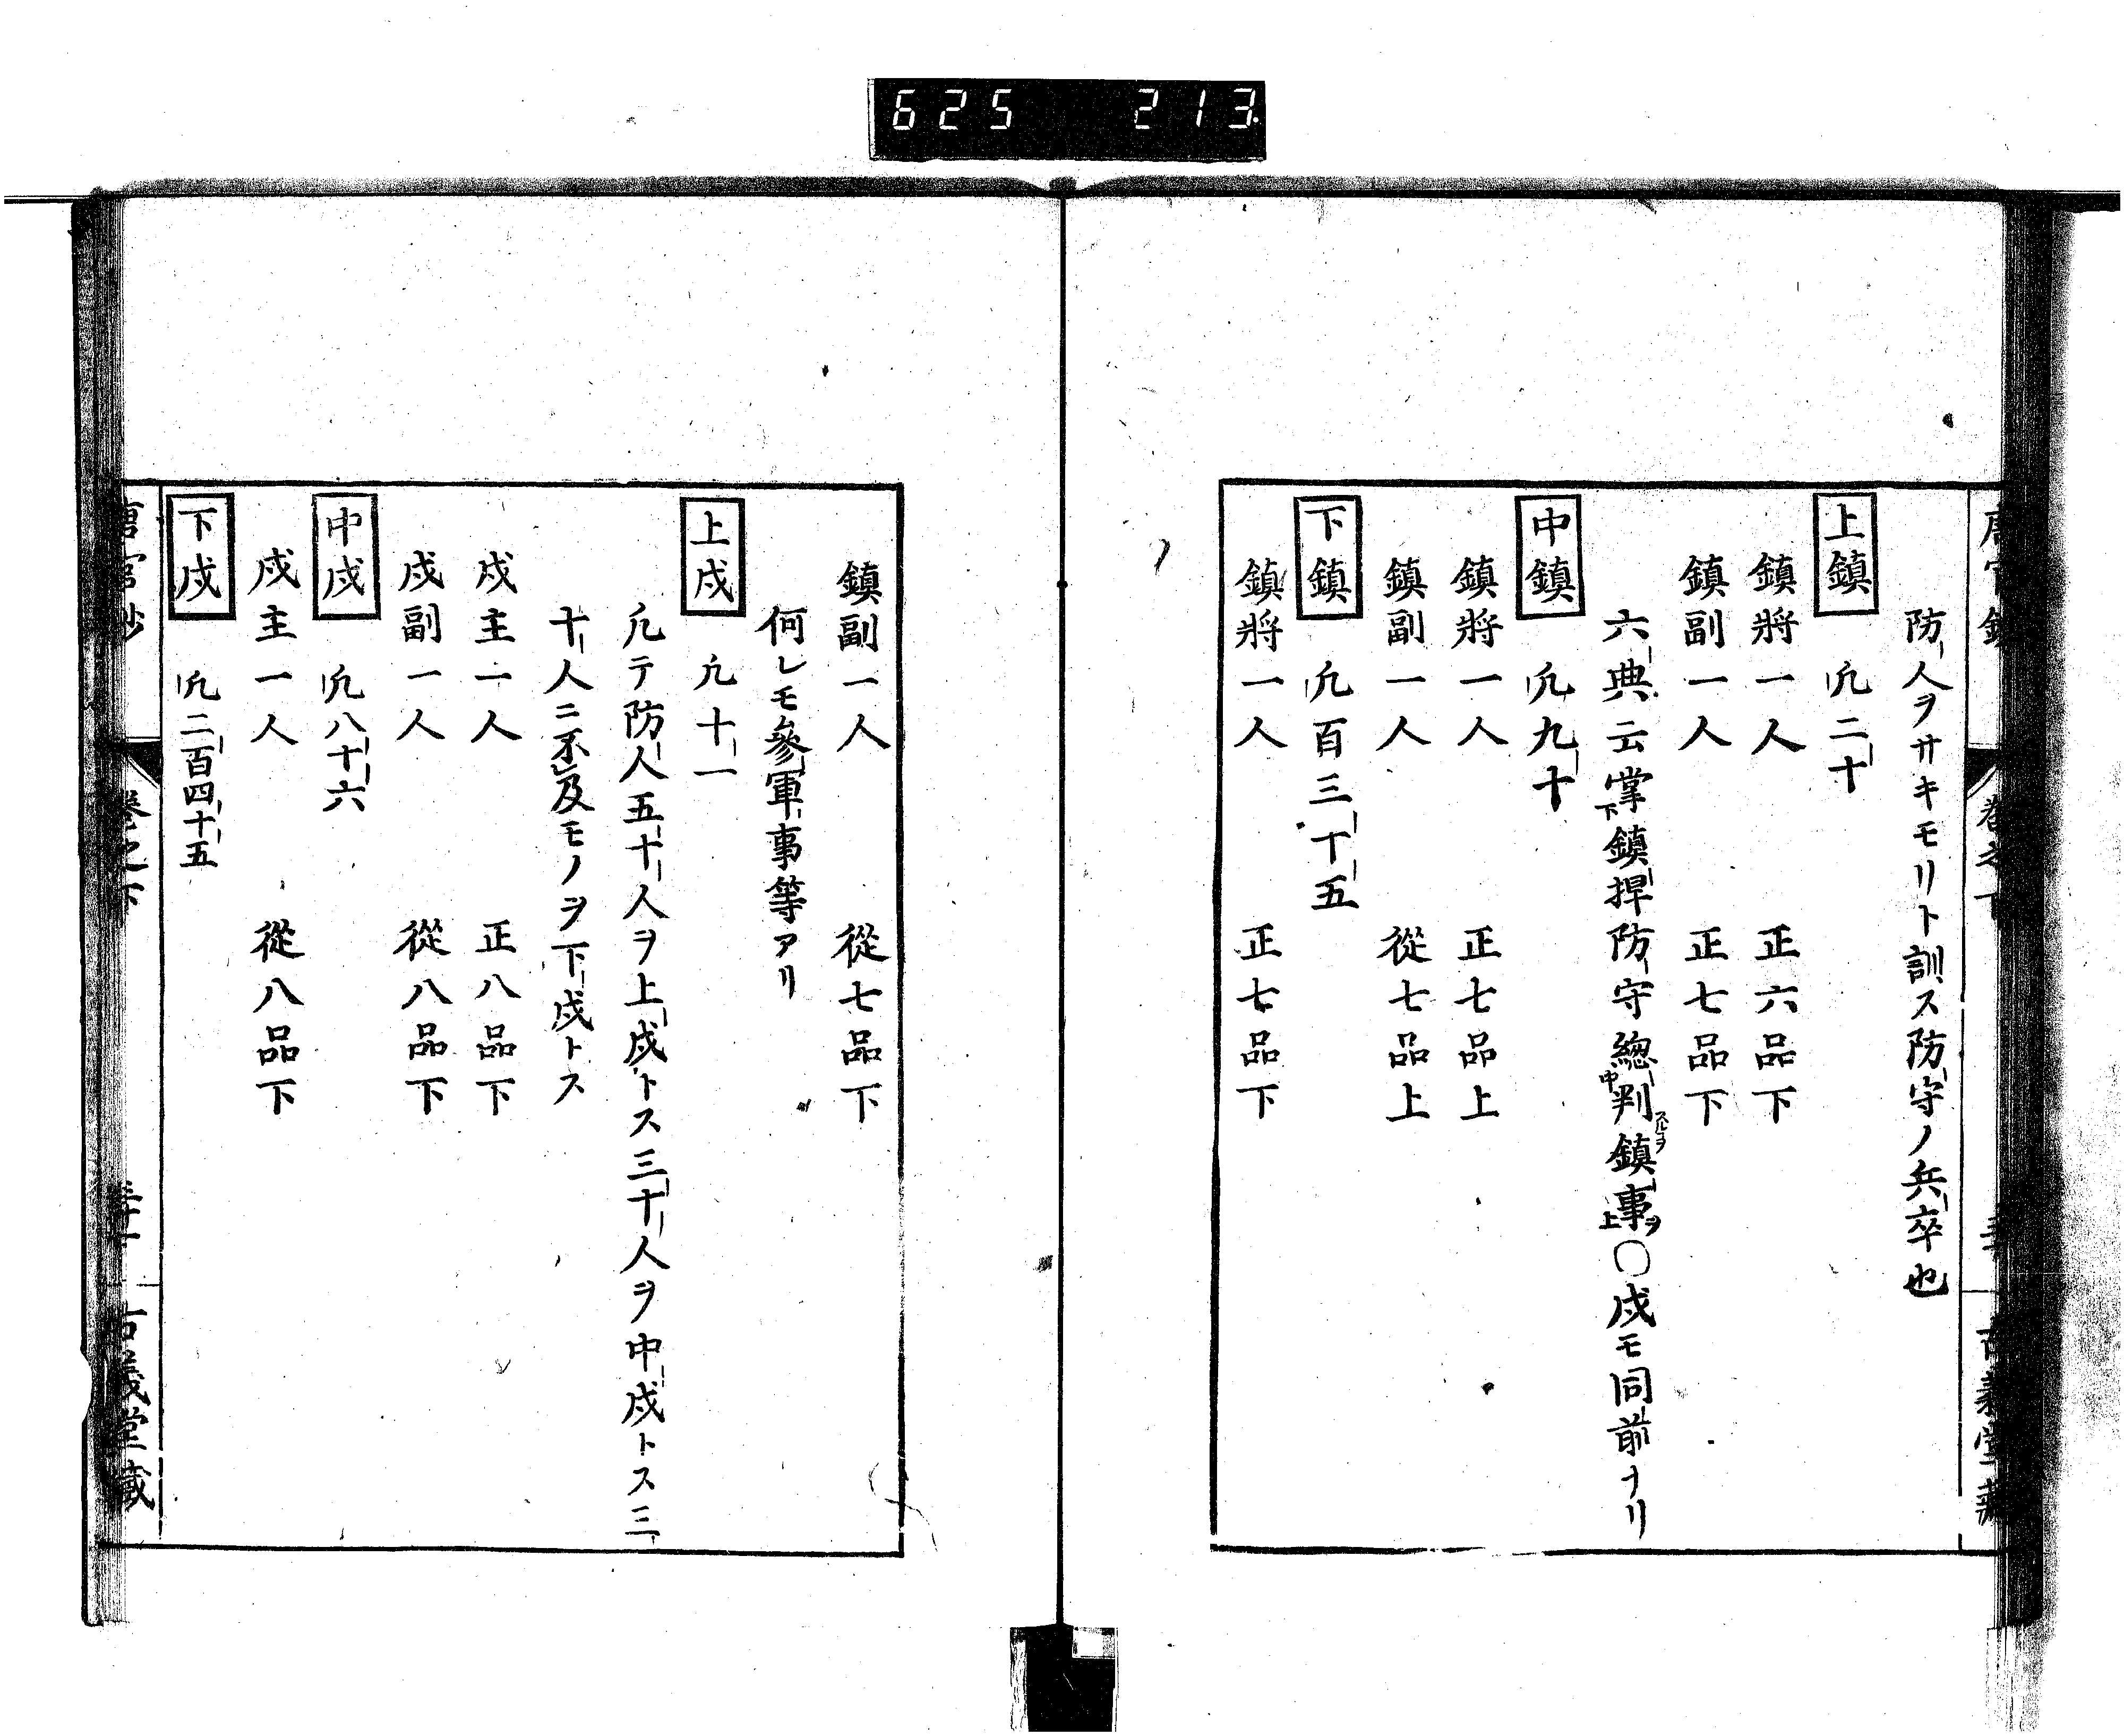 625 213
防人ヲサキモリト訓ス防守ノ兵卒也
上鎮 凢二十
鎮將一人 正六品下
鎮副一人 正七品下
六典云掌下鎮捍防守總中判スルヲ鎮事ヲ上〇戍モ同前ナリ
中鎮 凢九十
鎮將一人 正七品上
鎮副一人 從七品上
下鎮 凢百三十五
鎮將一人 正七品下
鎮副一人 從七品下
何レモ參軍事等アリ
上戍 凢十一
凢テ防人五十人ヲ上戍トス三十人ヲ中戍トス三
十人ニ不及モノヲ下戍トス
戍主一人 正八品下
戍副一人 從八品下
中戍 凢八十六
戍主一人 從八品下
下戍 凢二百四十五
唐官鈔 卷之下 古義堂藏